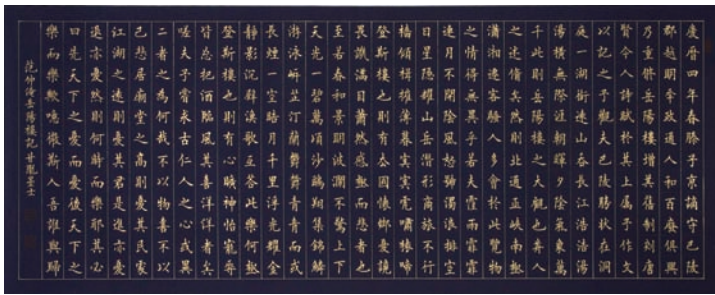 慶曆四年春滕子京謫守巴陵
郡越明年政通人和百廢俱興
乃重修岳陽樓增其舊制刻唐
賢今人詩賦於其上屬予作文
以記之予觀夫巴陵勝狀在洞
庭一湖銜遠山吞長江浩浩湯
湯橫無際涯朝暉夕陰氣象萬
千此則岳陽樓之大觀也前人
之述備矣然則北通巫峽南極
瀟湘遷客騷人多會於此覽物
之情得無異乎若夫霪雨霏霏
連月不開陰風怒號濁浪排空
日星隱耀山岳潛形商旅不行
檣傾楫摧薄暮冥冥虎嘯猿啼
登斯樓也則有去國懷鄉憂讒
畏譏滿目蕭然感極而悲者矣
至若春和景明波瀾不驚上下
天光一碧萬頃沙鷗翔集錦鱗
游泳岸芷汀蘭鬱鬱青青而或
長煙一空皓月千里浮光耀金
靜影沉璧漁歌互答此樂何極
登斯樓也則有心曠神怡寵辱
皆忘把酒臨風其喜洋洋者矣
嗟夫予嘗求古仁人之心或異
二者之為何哉不以物喜不以
己悲居廟堂之高則憂其民處
江湖之遠則憂其君是進亦憂
退亦憂然則何時而樂耶其必
曰先天下之憂而憂後天下之
樂而樂歟噫微斯人吾誰與歸
范仲淹岳陽樓記